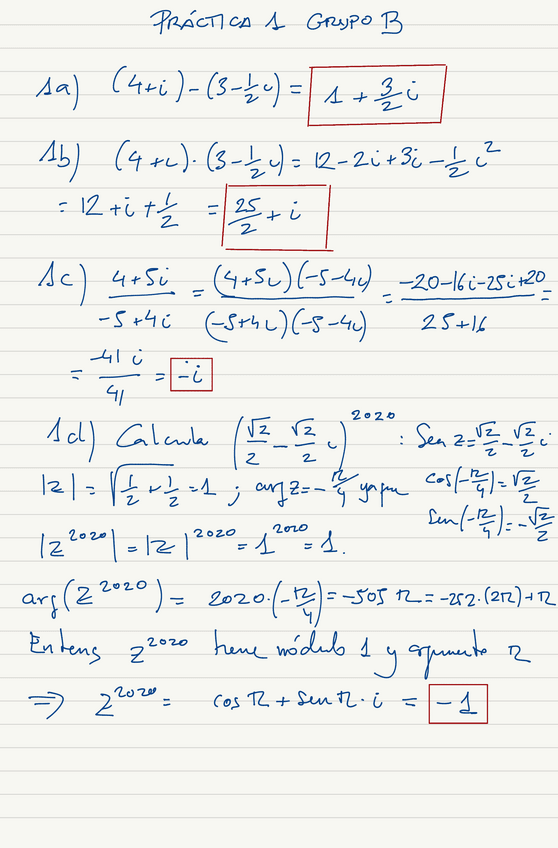 PRÁCTICA 1 GRUPO B
1a) (4+i)-(3-1/2 i) = 1 + 3/2 i
1b) (4+i)·(3-1/2 i) = 12-2i+3i-1/2 i²
= 12+i+1/2 = 25/2 + i
1c) (4+5i)/(-5+4i) = (4+5i)(-5-4i)/(-5+4i)(-5-4i) = (-20-16i-25i+20)/(25+16) =
= -41i/41 = -i
1d) Calcula (√2/2 - √2/2 i)^2020 : Sea z = √2/2 - √2/2 i
|z| = √(1/2 + 1/2) = 1 ; arg z = -π/4 ya que cos(-π/4) = √2/2
sen(-π/4) = -√2/2
|z^2020| = |z|^2020 = 1^2020 = 1.
arg(z^2020) = 2020·(-π/4) = -505π = -252·(2π)+π
Entons z^2020 tiene módulo 1 y argumento π
⇒ z^2020 = cos π + sen π · i = -1